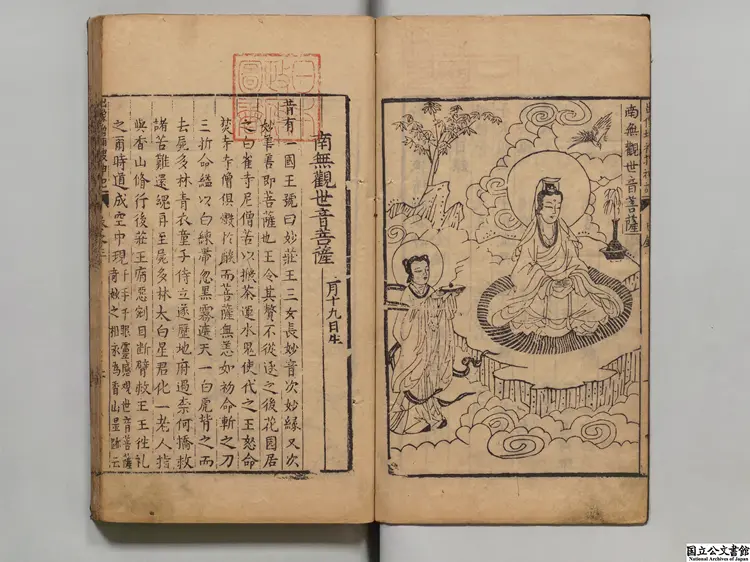 南無觀世音菩薩
日本政府圖書
南無觀世音菩薩
二月十九日生
昔有一國王號曰妙莊王三女長妙音次妙緣又次
妙善善即菩薩也王令其贅不從逐之後花園居
之白雀寺尼僧苦以搬茶運水鬼使代之王怒命
焚寺寺僧俱燬於燄而菩薩無恙如初命斬之刀
三折命縊以白練帶忽黑霧遮天一白虎背之而
去屍多林青衣童子侍立遂歷地府過柰何橋救
諸苦難還魂再至屍多林太白星君化一老人指
與香山修行後莊王病惡剜目斷臂救王王往礼
之爾時道成空中現
千手千眼靈感觀世音菩薩
奇妙之相永為香山顯跡云
国立公文書館
National Archives of Japan